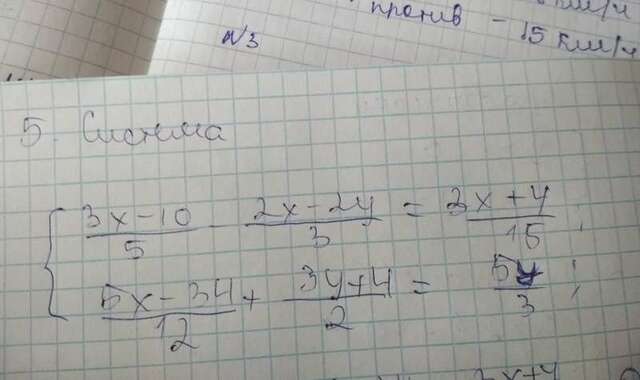 против - 15 км/ч
№3
5. Система
{ (3x-10)/5 - (2x-2y)/3 = (3x+4)/15 ;
(5x-34)/12 + (3y+4)/2 = 5y/3 ;
2x+4